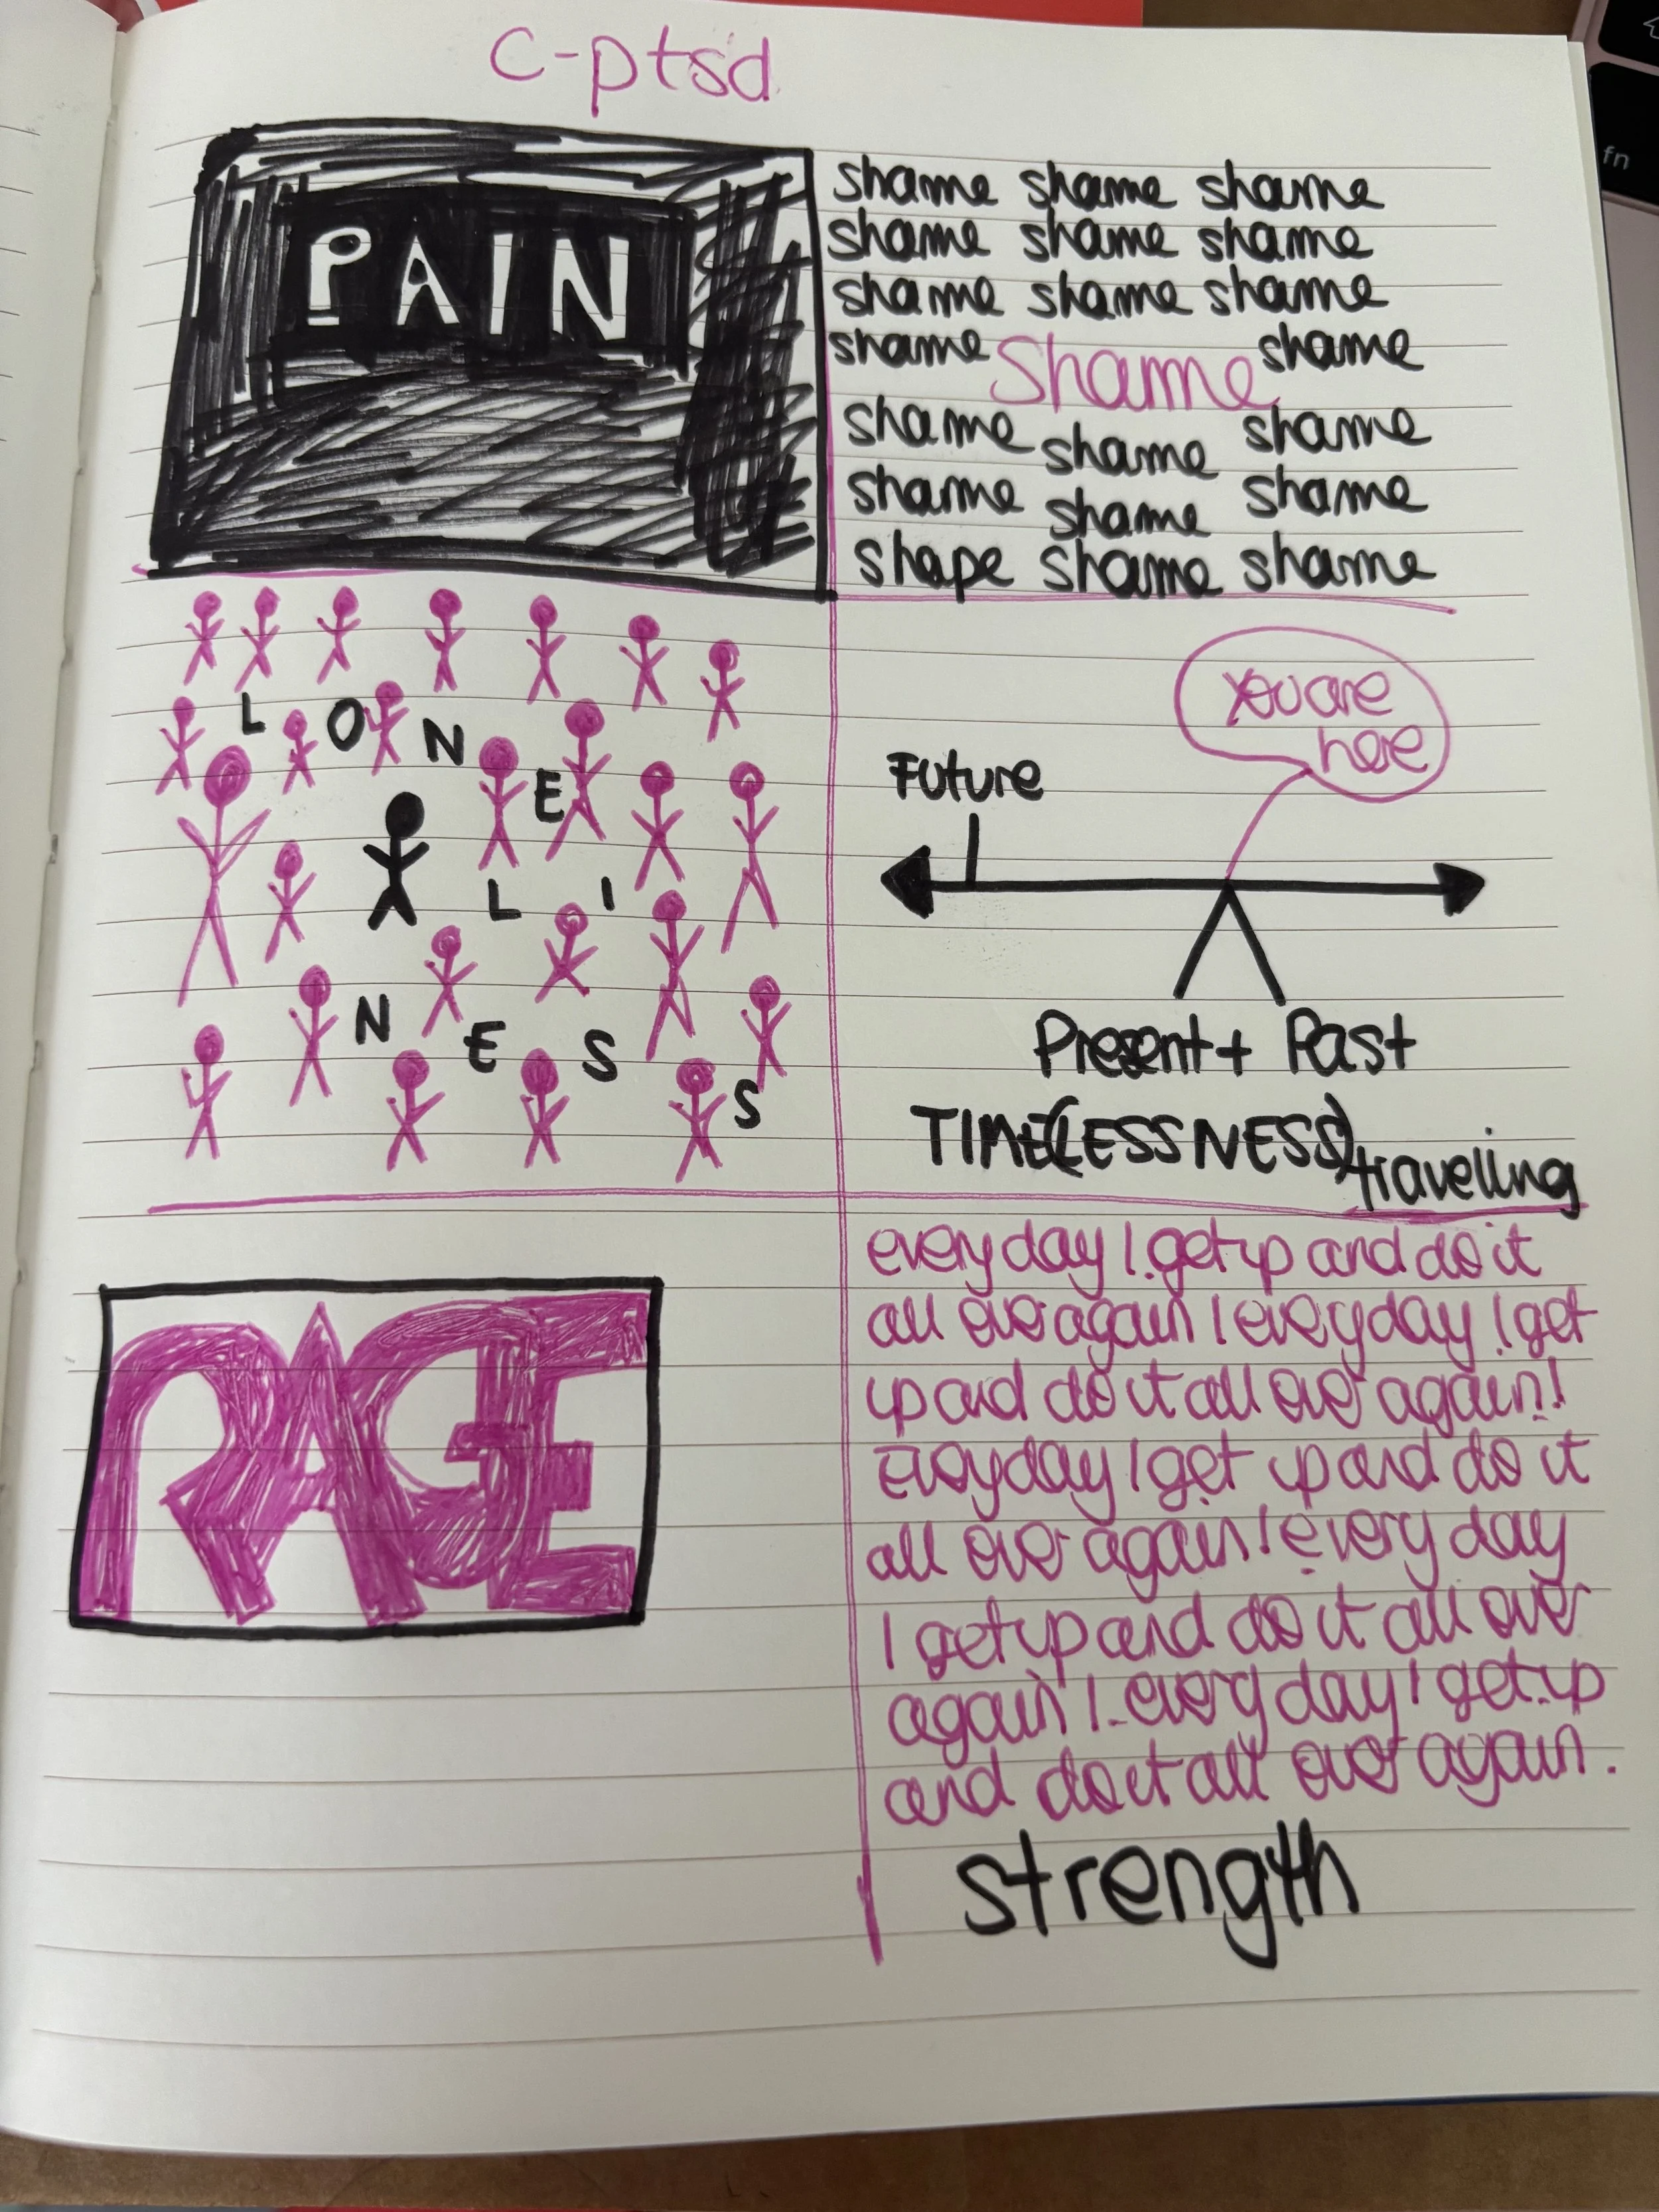 c-ptsd
PAIN
shame shame shame
shame shame shame
shame shame shame
shame Shame shame
shame shame shame
shame shame shame
shape shame shame
LONELINESS
you are
here
Future
Present + Past
TIME(LESSNESS)travelling
RAGE
everyday I get up and do it
all over again ! everyday I get
up and do it all over again!
Everyday I get up and do it
all over again! every day
I get up and do it all over
again! every day I get up
and do it all over again.
strength
fn